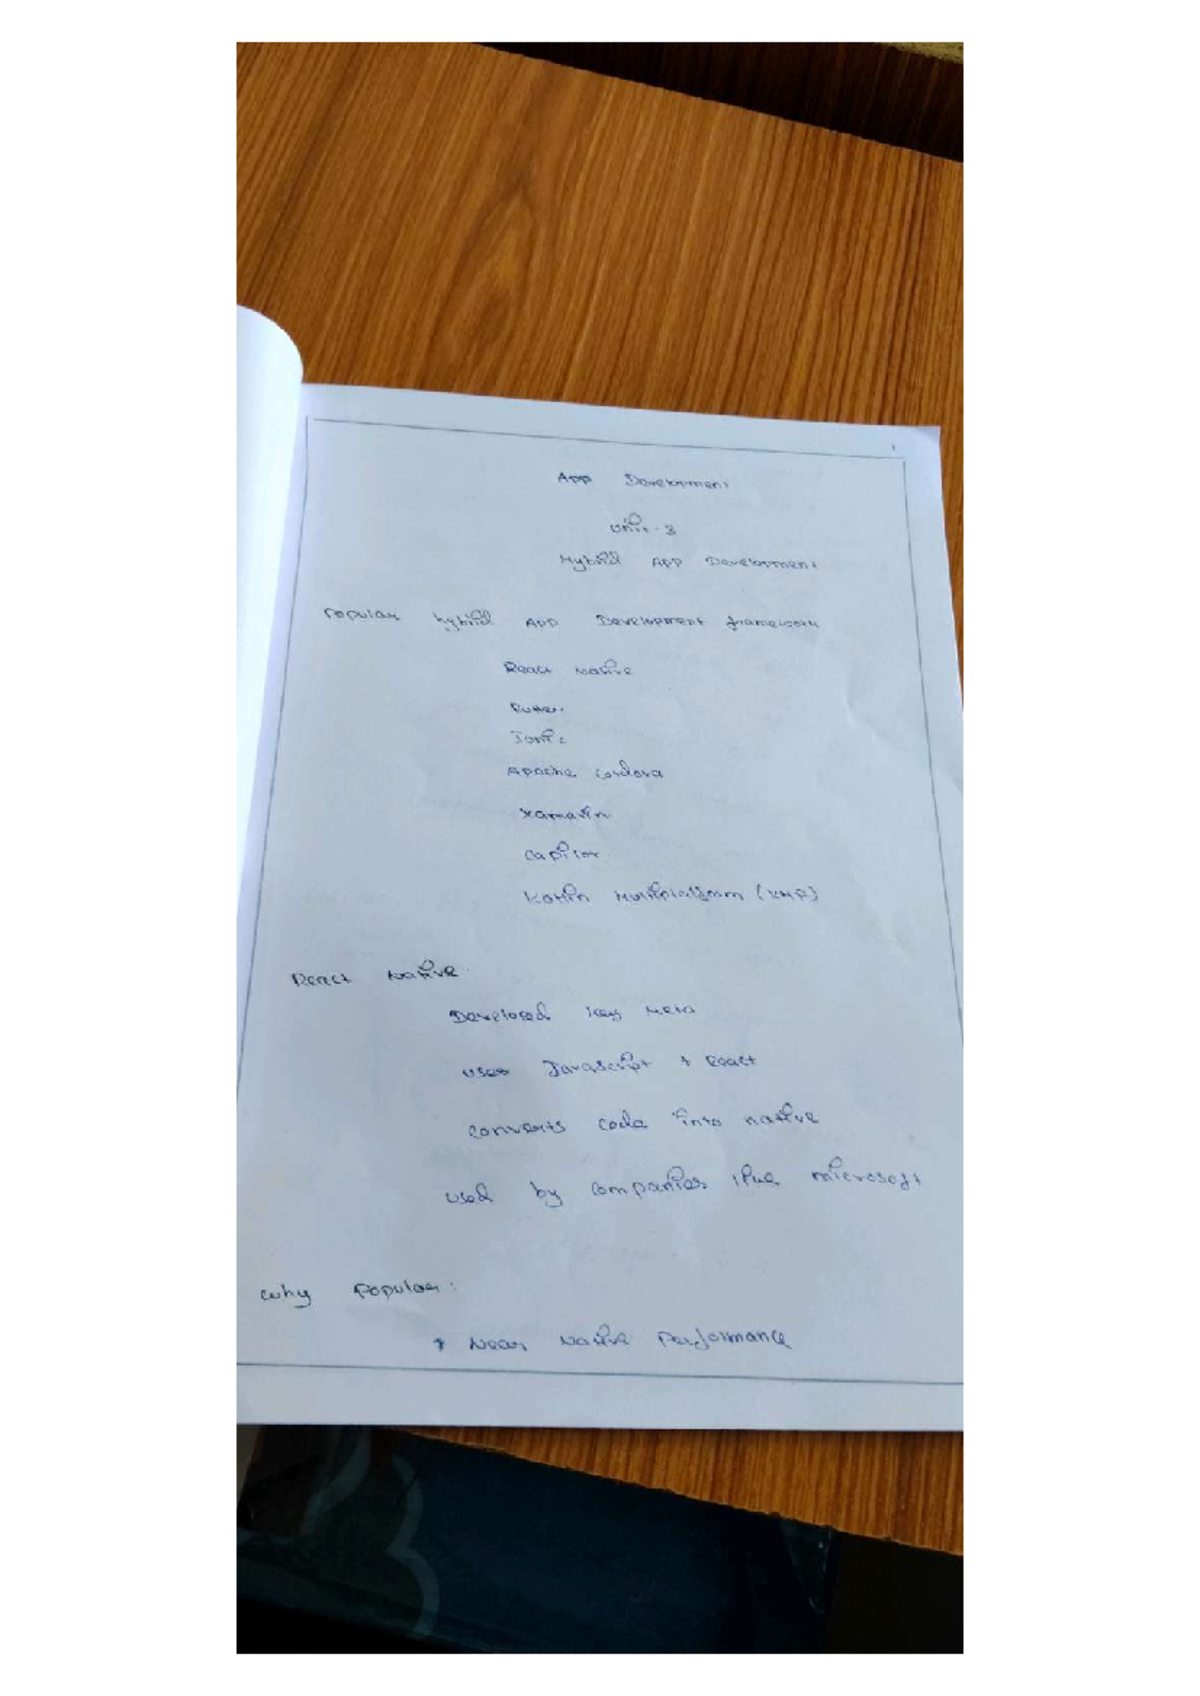 1
App Development
Unit-3
Hybrid App Development
Popular hybrid App Development framework
React Native
Flutter
Ionic
Apache Cordova
Xamarin
Capitor
Kotlin Multiplatform (KMP)
React Native
Developed key Meta
uses Javascript + React
converts code into native
used by companies like microsoft
why Popular:
* Near Native Performance